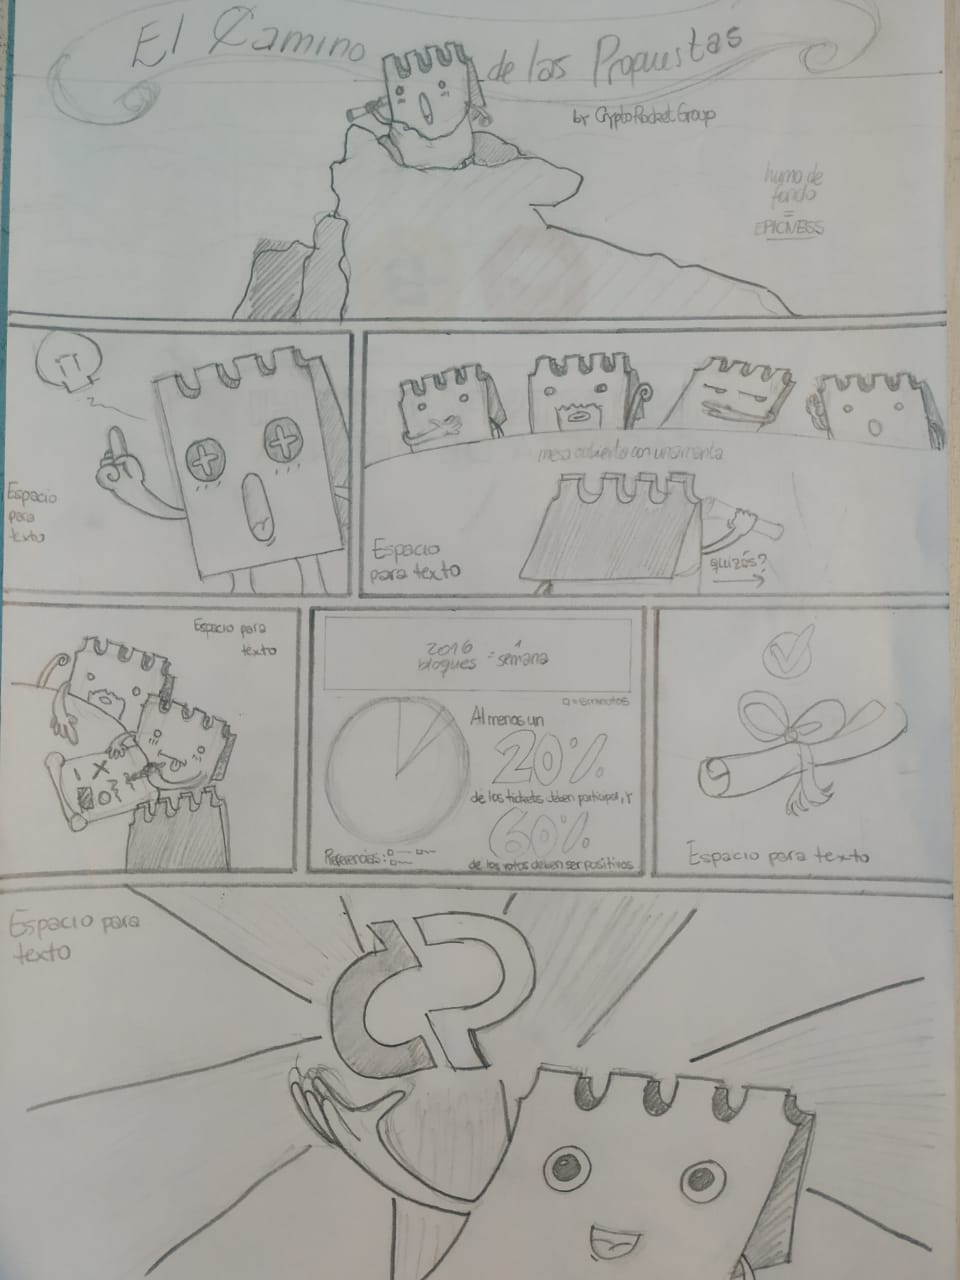 El Camino de las Propuestas
by CryptoRocketGroup
humo de
fondo
=
EPICNESS
Espacio
para
texto
mesa cubierta con una manta
Espacio
para texto
quizás?
Espacio para
texto
2016
bloques = 1 semana
= 5 minutos
Al menos un
20%
de los tickets deben participar, y
60%
de los votos deben ser positivos
Referencias:
Espacio para texto
Espacio para
texto